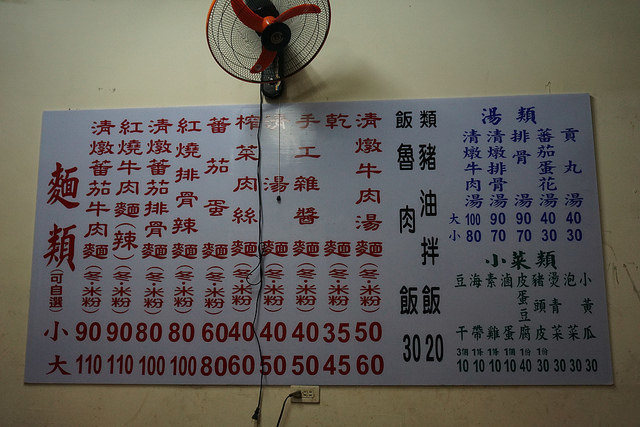 麵類(可自選)
清燉蕃茄牛肉麵(冬米粉)
紅燒牛肉麵(辣)(冬米粉)
清燉蕃茄排骨麵(冬米粉)
紅燒排骨辣麵(冬米粉)
蕃茄蛋麵(冬米粉)
榨菜肉絲麵(冬米粉)
湯麵(冬米粉)
手工雜醬麵(冬米粉)
乾麵(冬米粉)
清燉牛肉湯麵(冬米粉)
小 90 90 80 80 60 40 40 40 35 50
大 110 110 100 100 80 60 50 50 45 60
飯類
魯肉飯 30
豬油拌飯 20
湯類
清燉牛肉湯
清燉排骨湯
排骨湯
蕃茄蛋花湯
貢丸湯
大 100 90 90 40 40
小 80 70 70 30 30
小菜類
豆干
海帶
素雞
滷蛋
皮蛋豆腐
豬頭皮
燙青菜
泡菜
小黃瓜
3個 1條 1條 1個 1份 1份
10 10 10 10 40 30 30 30 30